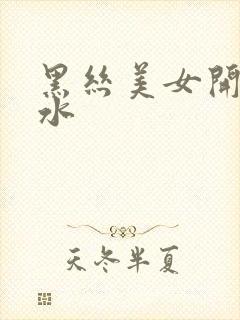 黑絲美女開
水
天冬半夏